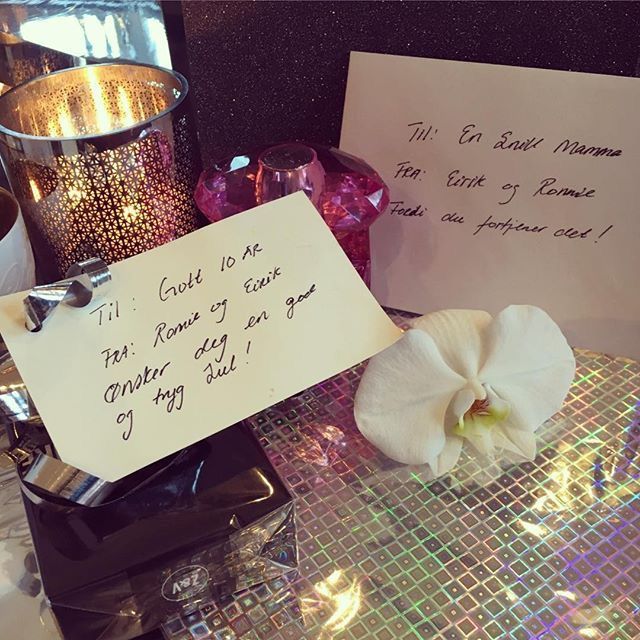 Til: En Snill Mamma
FRA: Eirik og Ronnie
Fordi du fortjener det!
Til: Gutt 10 ÅR
FRA: Ronnie og Eirik
Ønsker deg en god
og tryg Jul!